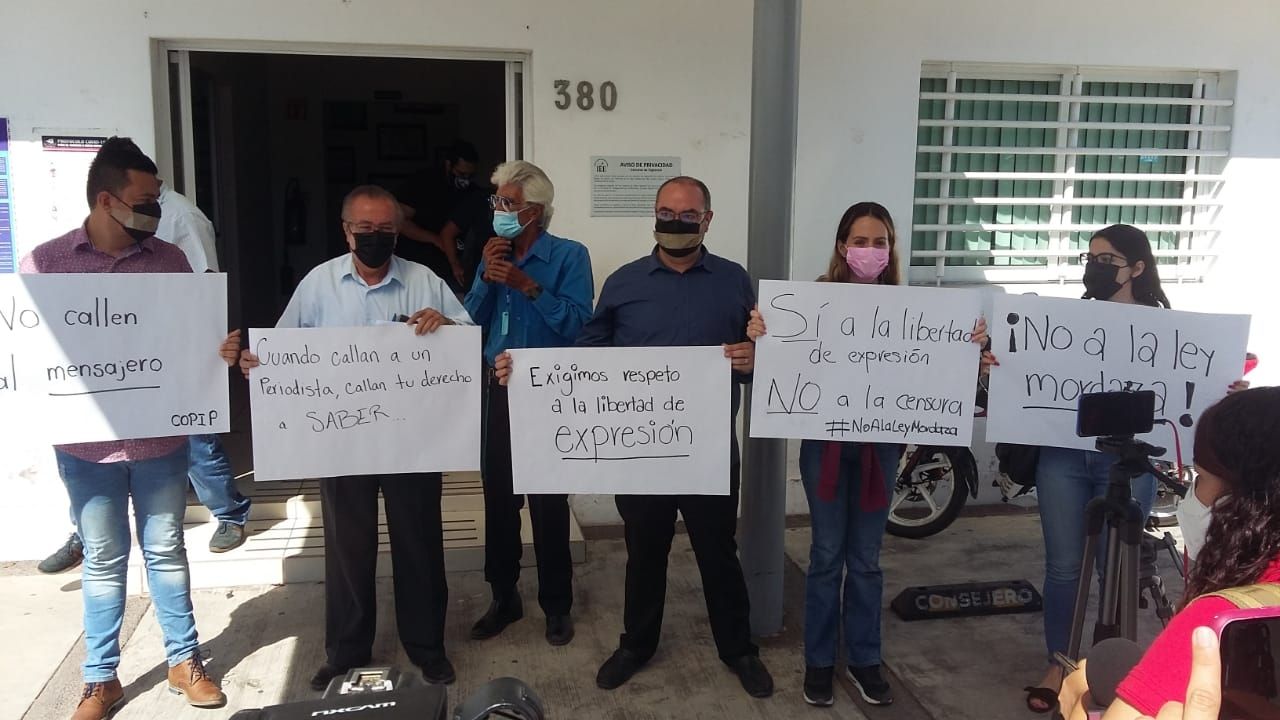 380
PROTOCOLO COVID-19
IEE
AVISO DE PRIVACIDAD
No callen
al mensajero
COPIP
Cuando callan a un
Periodista, callan tu derecho
a SABER...
Exigimos respeto
a la libertad de
expresión
Sí a la libertad
de expresión
NO a la censura
#NoAlaLeyMordaza
¡No a la ley
mordaza!
CONSEJERO
NXCAM